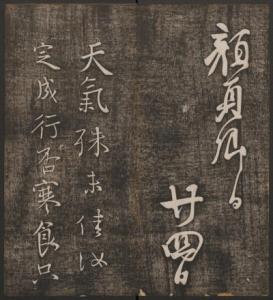 顏真卿
廿四日
天氣殊未佳汝
定成行否寒食只